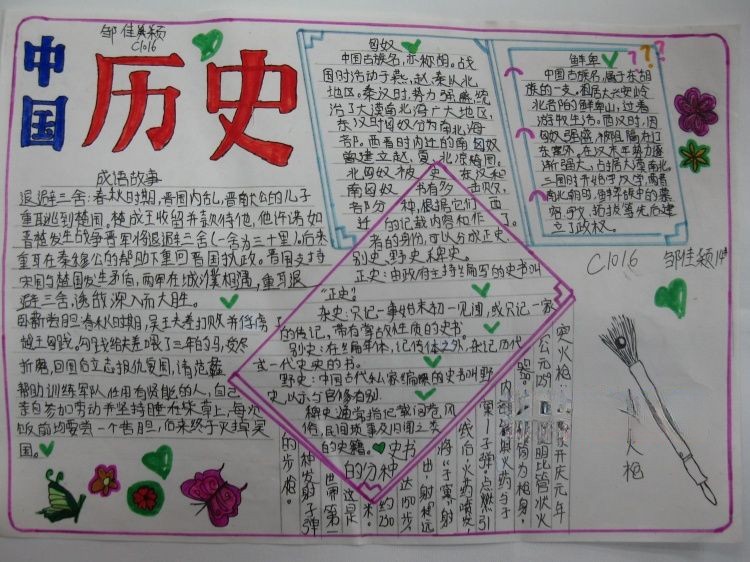 邹佳颖
C1016
中国
历史
成语故事
退避三舍:春秋时期,晋国内乱,晋献公的儿子
重耳逃到楚国。楚成王收留并款待他,他许诺如
晋楚发生战争晋军将退避三舍(一舍为三十里)。后来
重耳在秦穆公的帮助下重回晋国执政。晋国支持
宋国与楚国发生矛盾,两军在城濮相遇,重耳退
避三舍,诱敌深入而大胜。
卧薪尝胆:春秋时期,吴王夫差打败并俘虏了
越王勾践,勾践给夫差喂了三年的马,受尽
折磨,回国后立志报仇复国,请范蠡
帮助训练军队任用有贤能的人,自己
亲自参加劳动并坚持睡在柴草上,每次
饭前均要尝一个苦胆,后来终于灭掉吴
国。
匈奴
中国古族名,亦称胡。战
国时活动于燕、赵、秦以北
地区。秦汉时,势力强盛,统
治了大漠南北海广大地区,
东汉时匈奴分为南北海
部。西晋时内迁的南匈奴
曾建立赵、夏、北凉诸国。
北匈奴被
东汉和
南匈奴
击败,
西
迁
了。
史
书有多
部分种,根据它们
的记载内容和作
者的身份,可以分成正史、
别史、野史、稗史。
正史:由政府主持编写的史书叫
“正史”。
杂史:只记一事始末初一见闻,或只记一家
的传记,带有掌故性质的史书。
别史:在编年体、记传体之外,杂记历代
或一代史实的书。
野史:中国古代私家编撰的史书叫野
史,以示与官修有别。
稗史通常指记载闾巷风
俗,民间琐事及旧闻之类
的史籍。
史书
的分种
鲜卑
???
中国古族名,属于东胡
族的一支。祖居大兴安岭
北部的鲜卑山,过着
游牧生活。西汉时,因
匈奴强盛,被阻隔
东塞外。在汉末年势力逐
渐强大,占居大漠南北。
三国时开始于
南北朝
立了政权。
C1016
邹佳颖
突火枪
火枪
公元1259
开庆元年
子弹,点燃引
线后,火药喷发,
射
出,射程远
达150步
约230
米
这是
世界第一
种发射子弹
的步枪。